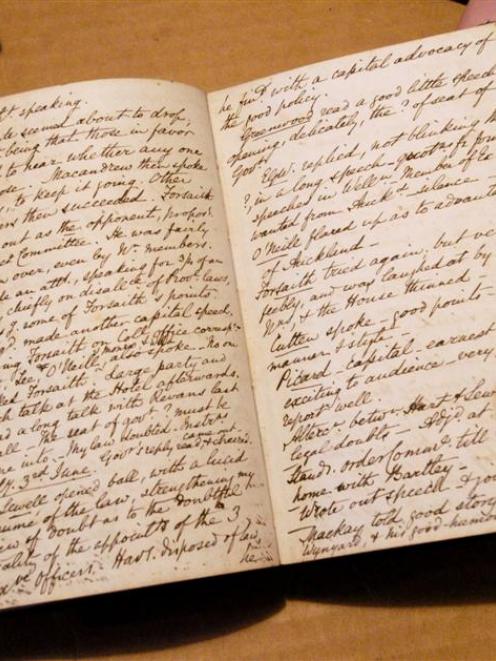 speaking.
seemed about to drop,
being that those in favor
to hear whether any one
Macandrew then spoke
to keep it going. Other
then succeeded. Forsaith
out as the opponent,
Committee. He was fairly
over, even by Wn. members.
an attk., speaking for 3/4 of an
chiefly on disalce of Provl. laws,
some of Forsaith's points.
made another capital speed,
Forsaith on Coll. Office
Lee, & O'Neill, also spoke. No one
Forsaith. Large party and
talk at the Hotel afterwards,
a long talk with Revans last
The seat of govt. ? must be
into. My law doubted.
3rd June. Gov's reply read & cheered.
Sewell opened ball, with a lucid
of the law, strengthening my
of doubt as to the doubtful
of the appointts of the 3
officers. Hart disposed of law,
he
he fin'd with a capital advocacy of
the good policy.
Greenwood read a good little speech
opening, delicately, the ? of seat of
Govt.
replied, not blinking
?, in a long speech - quotns fr
speeches in Welln. Member of Ex
wanted from Auckd. silence
O'Neill flared up as to advant
of Auckland -
Forsaith tried again, but ve
feebly, and was laughed at by
& the House thinned -
Cutten spoke - good points -
manner & style -
Picard - capital - earnest
exciting to audience - very
report well.
betwn Hart & Sew
legal doubts - Adj'd at
Stands. order Comme. till
home with Bartley -
- Wrote out speech &
Mackay told good story
Wynyard, & his good-humo